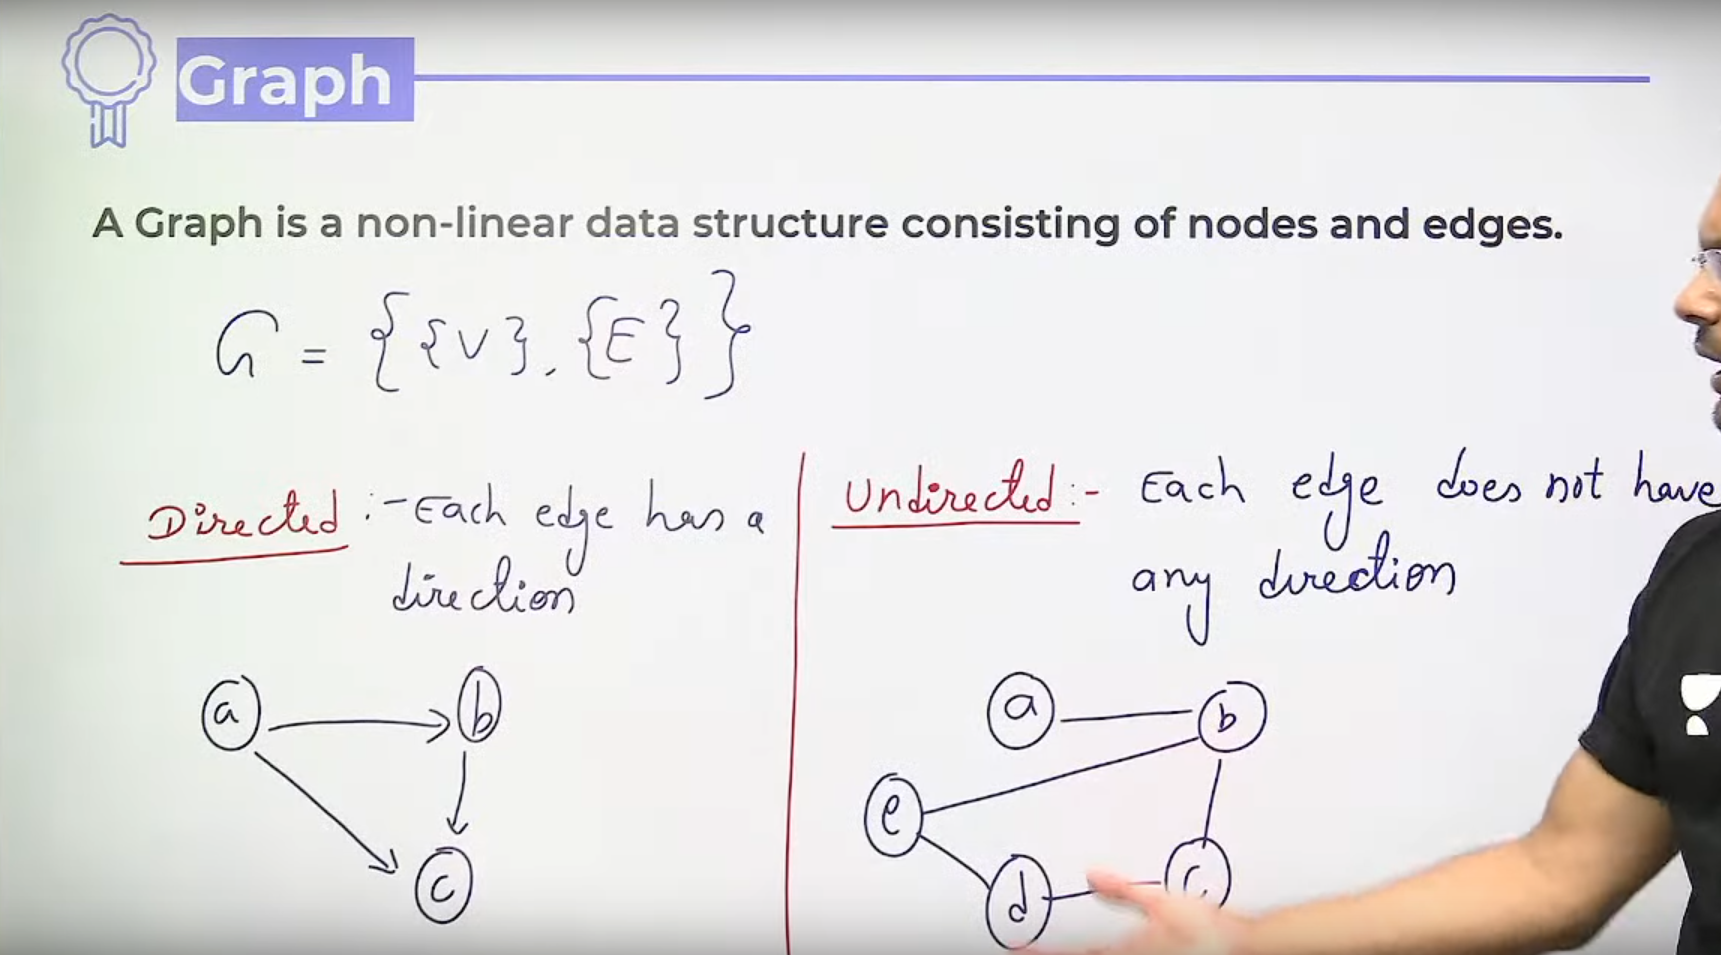 Graph
A Graph is a non-linear data structure consisting of nodes and edges.
G = {{V}, {E}}
Directed :- Each edge has a
direction
a b
c
Undirected :- Each edge does not have
any direction
a b
e
d c